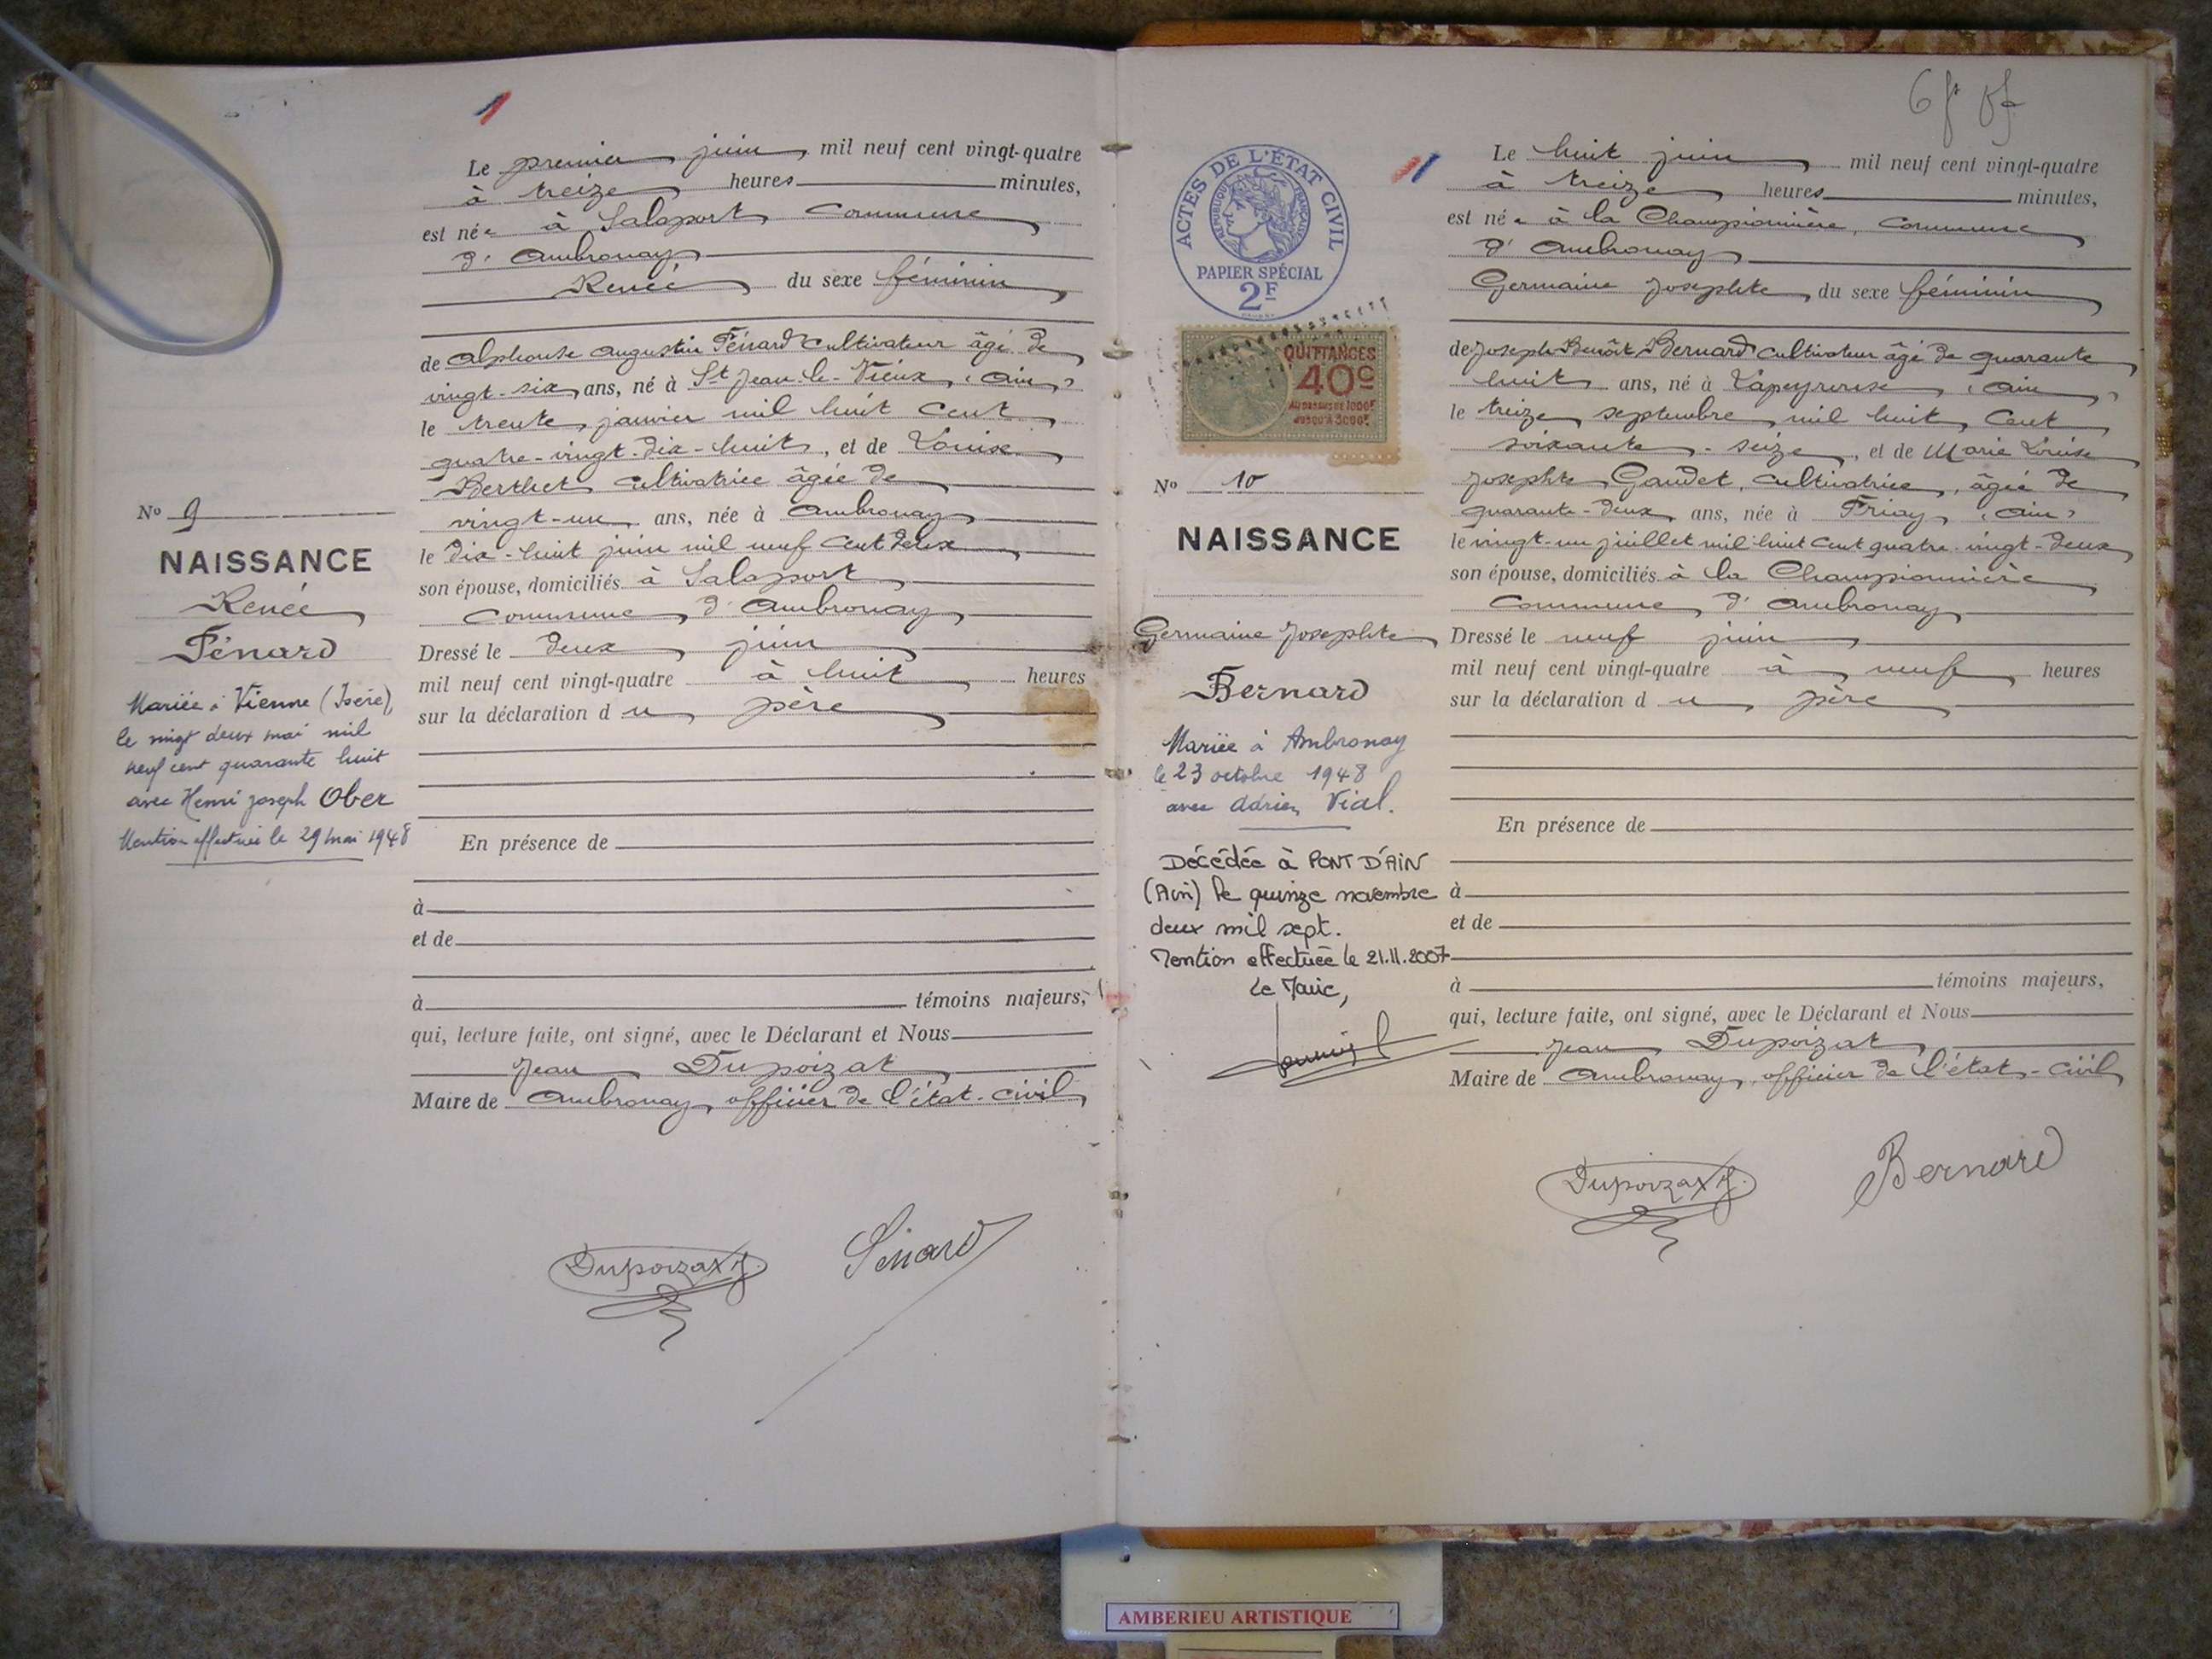 Le premier juin mil neuf cent vingt-quatre
à treize heures minutes,
est née à Salaport Commune
d'Ambronay
Renée du sexe féminin
de Alphonse Augustin Fénard cultivateur âgé de
vingt-six ans, né à St Jean-le-Vieux (Ain)
le trente janvier mil huit cent
quatre-vingt-dix-huit, et de Louise
Berthet cultivatrice âgée de
vingt-un ans, née à Ambronay
le dix-huit juin mil neuf cent deux
son épouse, domiciliés à Salaport
Commune d'Ambronay
Dressé le deux juin
mil neuf cent vingt-quatre à huit heures
sur la déclaration du père
En présence de
à
et de
à témoins majeurs,
qui, lecture faite, ont signé, avec le Déclarant et Nous
Jean Dupoizat
Maire de Ambronay, officier de l'état-civil
Dupoizat J.
Fénard
No 9
NAISSANCE
Renée
Fénard
Mariée à Vienne (Isère),
le vingt deux mai mil
neuf cent quarante huit
avec Henri Joseph Ober
Mention effectuée le 29 mai 1948
ACTES DE L'ÉTAT CIVIL
RÉPUBLIQUE FRANÇAISE
PAPIER SPÉCIAL
2F
QUITTANCES
40c
AU DESSUS DE 1000F
JUSQU'A 3000F
No 10
NAISSANCE
Germaine Josephte
Bernard
Mariée à Ambronay
le 23 octobre 1948
avec Adrien Vial.
Décédée à PONT D'AIN
(Ain) le quinze novembre
deux mil sept.
Mention effectuée le 21.11.2007
Le Maire,
Le huit juin mil neuf cent vingt-quatre
à treize heures minutes,
est née à la Championnière, commune
d'Ambronay
Germaine Josephte du sexe féminin
de Joseph Benoît Bernard cultivateur âgé de quarante
huit ans, né à Lapeyrouse (Ain)
le treize septembre mil huit cent
soixante-seize, et de Marie Louise
Josephte Gaudet, cultivatrice, âgée de
quarante-deux ans, née à Priay (Ain)
le vingt-un juillet mil huit cent quatre-vingt-deux
son épouse, domiciliés à la Championnière
Commune d'Ambronay
Dressé le neuf juin
mil neuf cent vingt-quatre à neuf heures
sur la déclaration du père
En présence de
à
et de
à témoins majeurs,
qui, lecture faite, ont signé, avec le Déclarant et Nous
Jean Dupoizat
Maire de Ambronay, officier de l'état-civil
Dupoizat J.
Bernard
AMBERIEU ARTISTIQUE